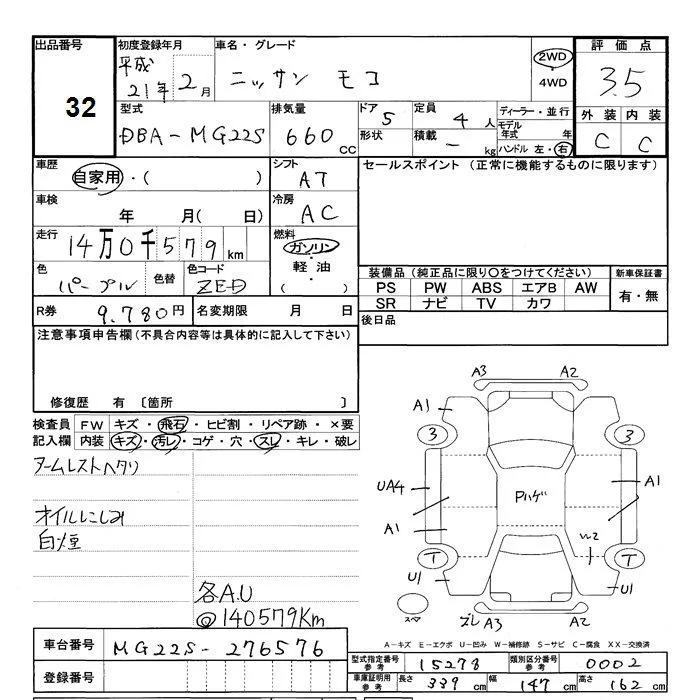 出品番号
32
初度登録年月
平成
21年2月
車名・グレード
ニッサン モコ
2WD
・
4WD
評価点
3.5
外装 内装
C C
型式
DBA-MG22S
排気量
660 cc
ドア
5
形状
定員
4人
積載
- kg
ディーラー・並行
モデル
年式 年
ハンドル 左・右
車歴
自家用・( )
シフト
AT
車検
年 月( 日)
冷房
AC
走行
14万0千579km
燃料
ガソリン
・
軽油
・
( )
色
パープル
色替
色コード
ZED
R券 9.780円
名変期限 月 日
セールスポイント(正常に機能するものに限ります)
装備品(純正品に限り○をつけてください)
PS PW ABS エアB AW
SR ナビ TV カワ
新車保証書
有・無
後日品
注意事項申告欄(不具合内容等は具体的に記入して下さい)
修復歴 有 〔箇所 〕
検査員 FW キズ・飛石・ヒビ割・リペア跡・×要
記入欄 内装 キズ・汚レ・コゲ・穴・スレ・キレ・破レ
アームレストヘタリ
オイルにじみ
白煙
各A.U
@140579Km
A3 A2
A1
3 3
UA4 Pハゲ A1
A1
W2
T T
U1 U1
スペア
ズレ A3 A2
A-キズ E-エクボ U-凹み W-補修跡 S-サビ C-腐食 XX-交換済
車台番号 MG22S-276576
登録番号
型式指定番号
参考
15278
類別区分番号
参考
0002
車庫証明用
参考
長さ 339cm 幅 147cm 高さ 162cm